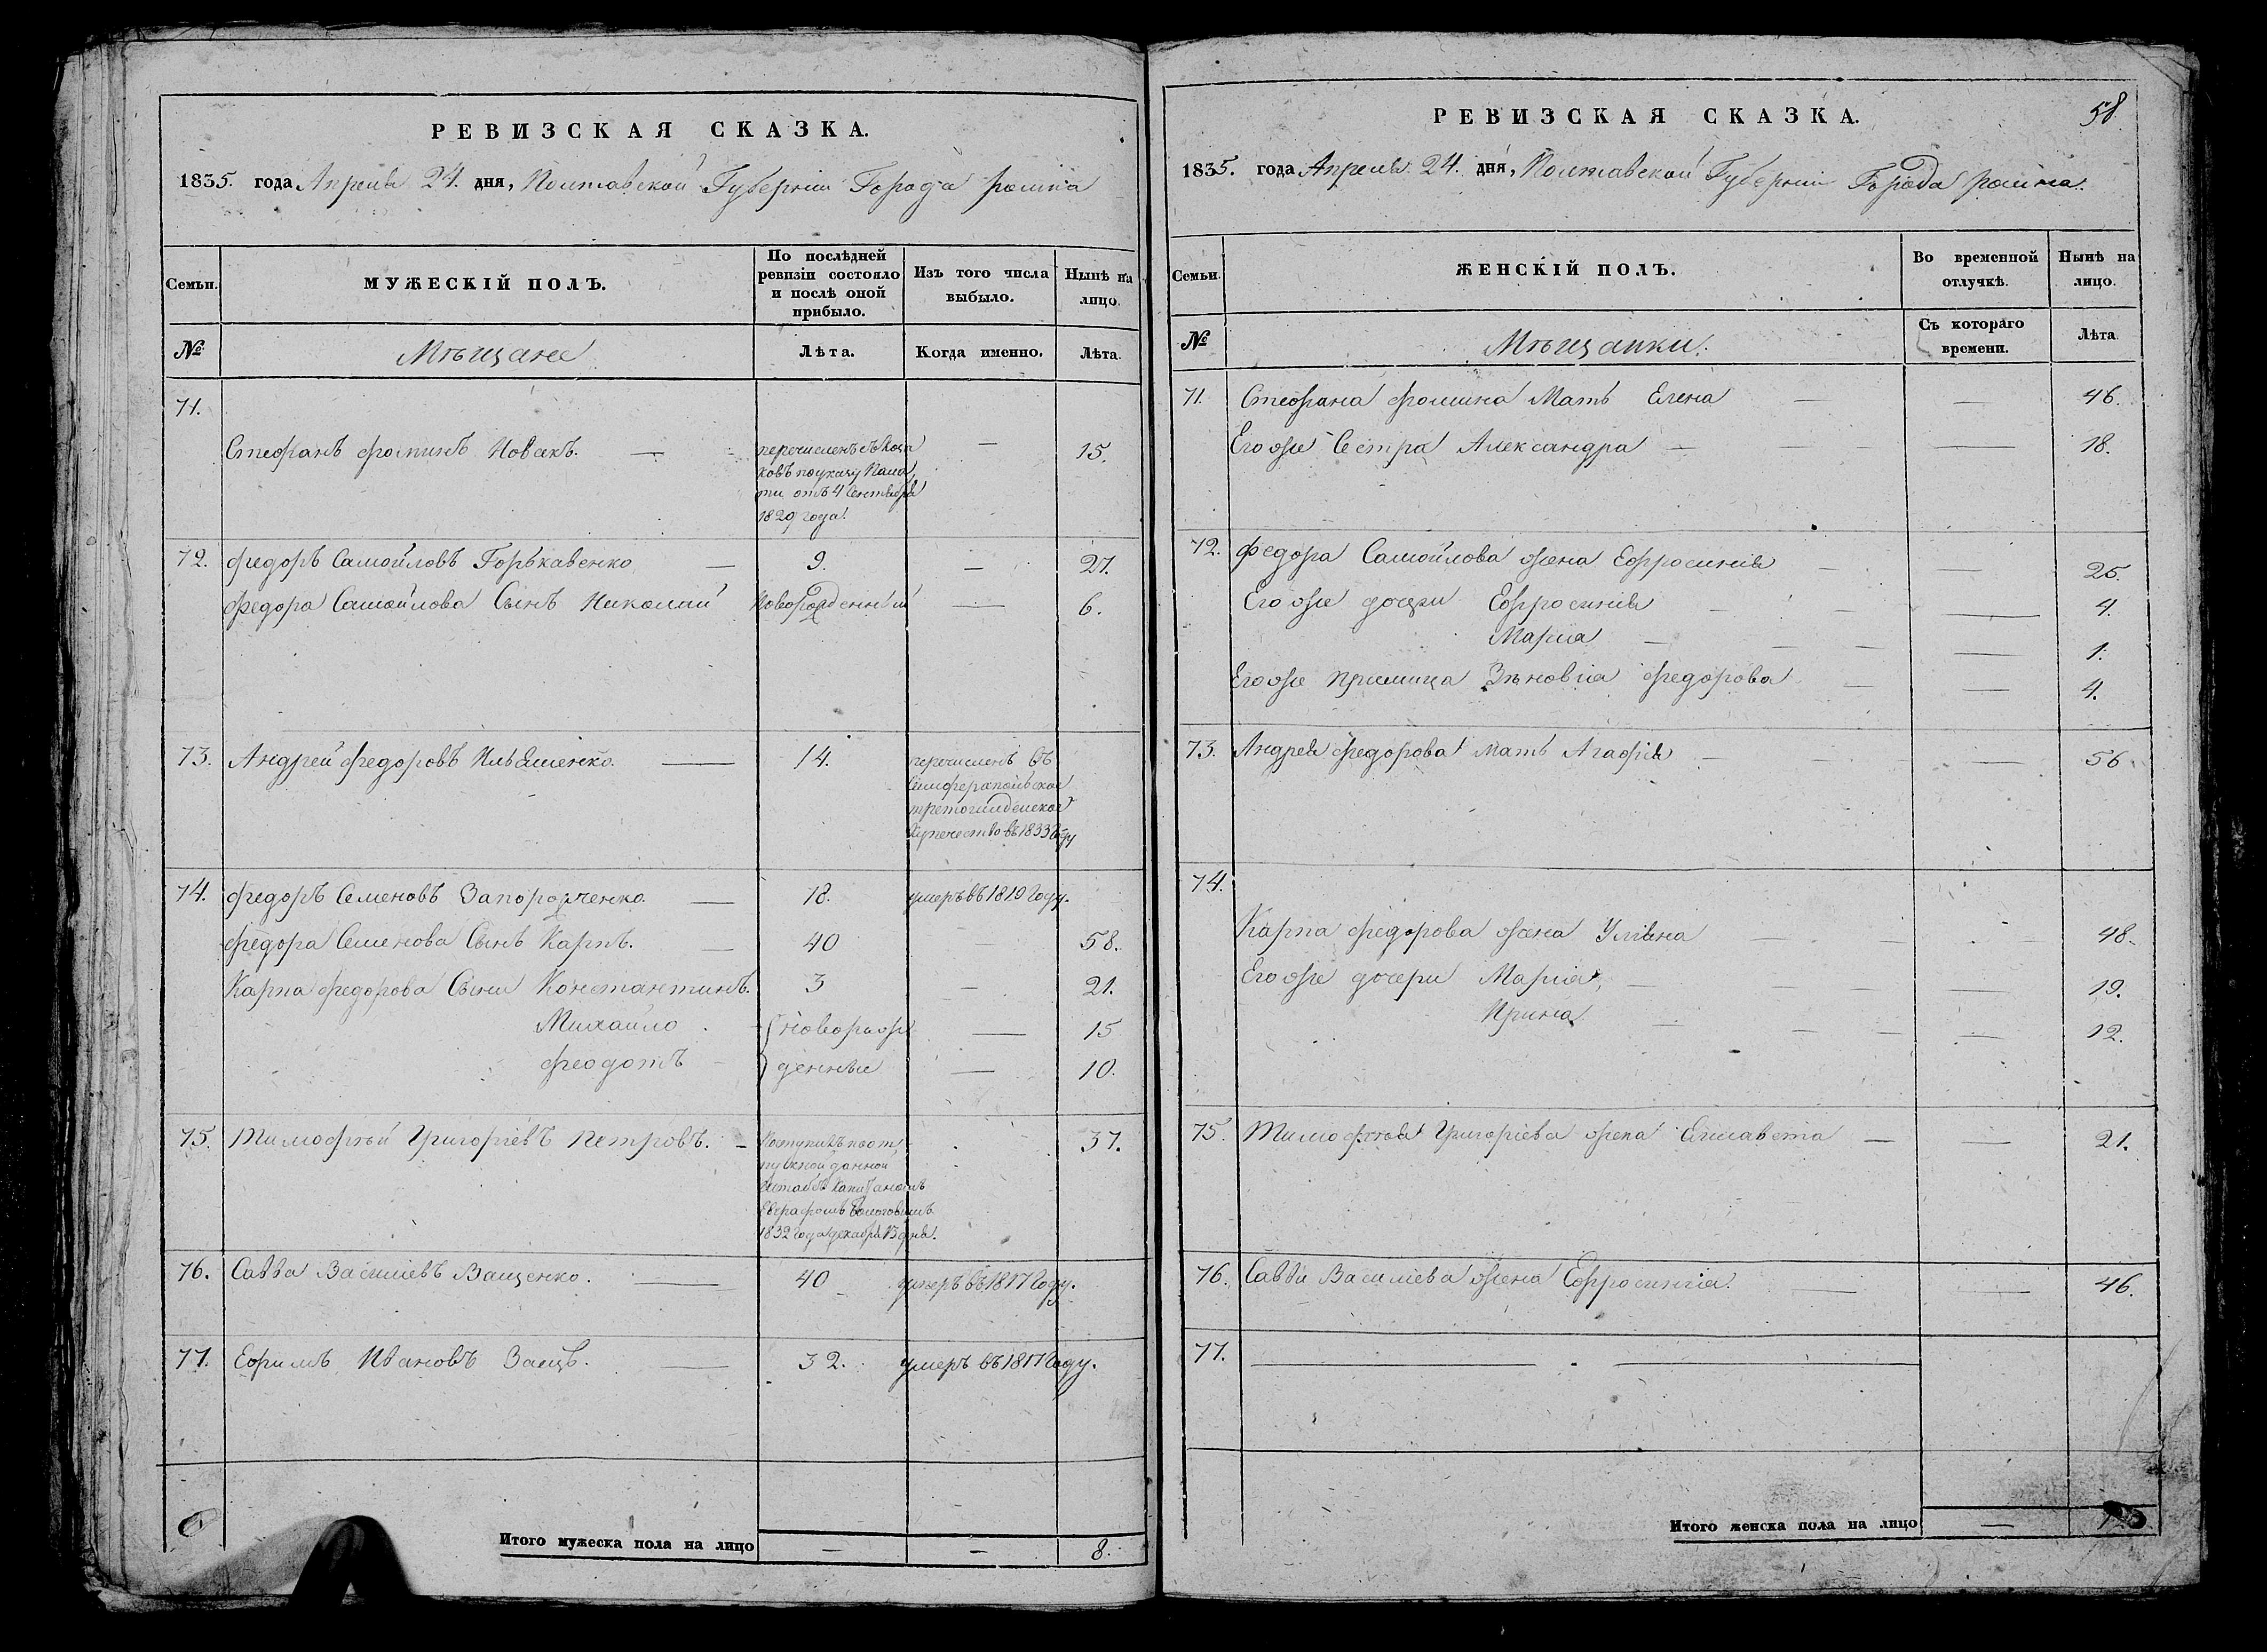 РЕВИЗСКАЯ СКАЗКА.
1835. года Апреля 24. дня, Полтавской Губернии Города ромна
Семьи.
МУЖЕСКІЙ ПОЛЪ.
По послѣдней ревизіи состояло и послѣ оной прибыло.
Изъ того числа выбыло.
Нынѣ на лицо.
№
Мѣщане
Лѣта.
Когда именно.
Лѣта.
71.
Стефанъ фоминъ Новакъ. — перечисленъ съ Коза — 15.
ковъ по указу Пала
ти отъ 4 Сентября
1829 года.
72. федоръ Самойловъ Горькавенко — 9. — 27.
федора Самойлова Сынъ Николай Новорожденный — 6.
73. Андрей федоровъ Ильяшенко. — 14. перечисленъ въ
Симферопольское
третогилдейское
Купечество въ 1833 Году
74. федоръ Семеновъ Запорожченко. — 18. умеръ въ 1819 Году.
федора Семенова Сынъ Карпъ. — 40 58.
Карпа федорова Сыни Константинъ. 3 — 21.
Михайло { новорож — 15
феодотъ денные — 10.
75. Тимофѣй Григоріевъ Петровъ. — Поступилъ по от 37.
пускной данной
Штабсъ Капитаномъ
1832 Года декабря 13 дня.
76. Савва Василіевъ Ващенко. — 40 умеръ въ 1817 Году.
77. Ефимъ Ивановъ Заецъ. — 32. умеръ въ 1817 Году.
Итого мужеска пола на лицо — — 8.
58.
РЕВИЗСКАЯ СКАЗКА.
1835. года Апреля 24. дня, Полтавской Губернии Города ромна.
Семьи.
ЖЕНСКІЙ ПОЛЪ.
Во временной отлучкѣ.
Нынѣ на лицо.
№
Мѣщанки.
Съ котораго времени.
Лѣта.
71. Стефана фомина Мать Елена — — 46.
Его же Сестра Александра — — 18.
72. федора Самойлова жена Ефросинія — — 25.
Его же дочери Ефросинія — — 4.
Марія — — 1.
Его же Пріимица Зѣновіа федорова — — 4.
73. Андрея федорова мать Агафія — — 56.
74.
Карпа федорова жена Уліяна — — 48.
Его же дочери Марія, — — 19.
Ирина — — 12.
75. Тимофѣя Григоріева жена Елисавета — — 21.
76. Саввы Василіева жена Ефросинія. — — 46.
77. —
Итого женска пола на лицо —